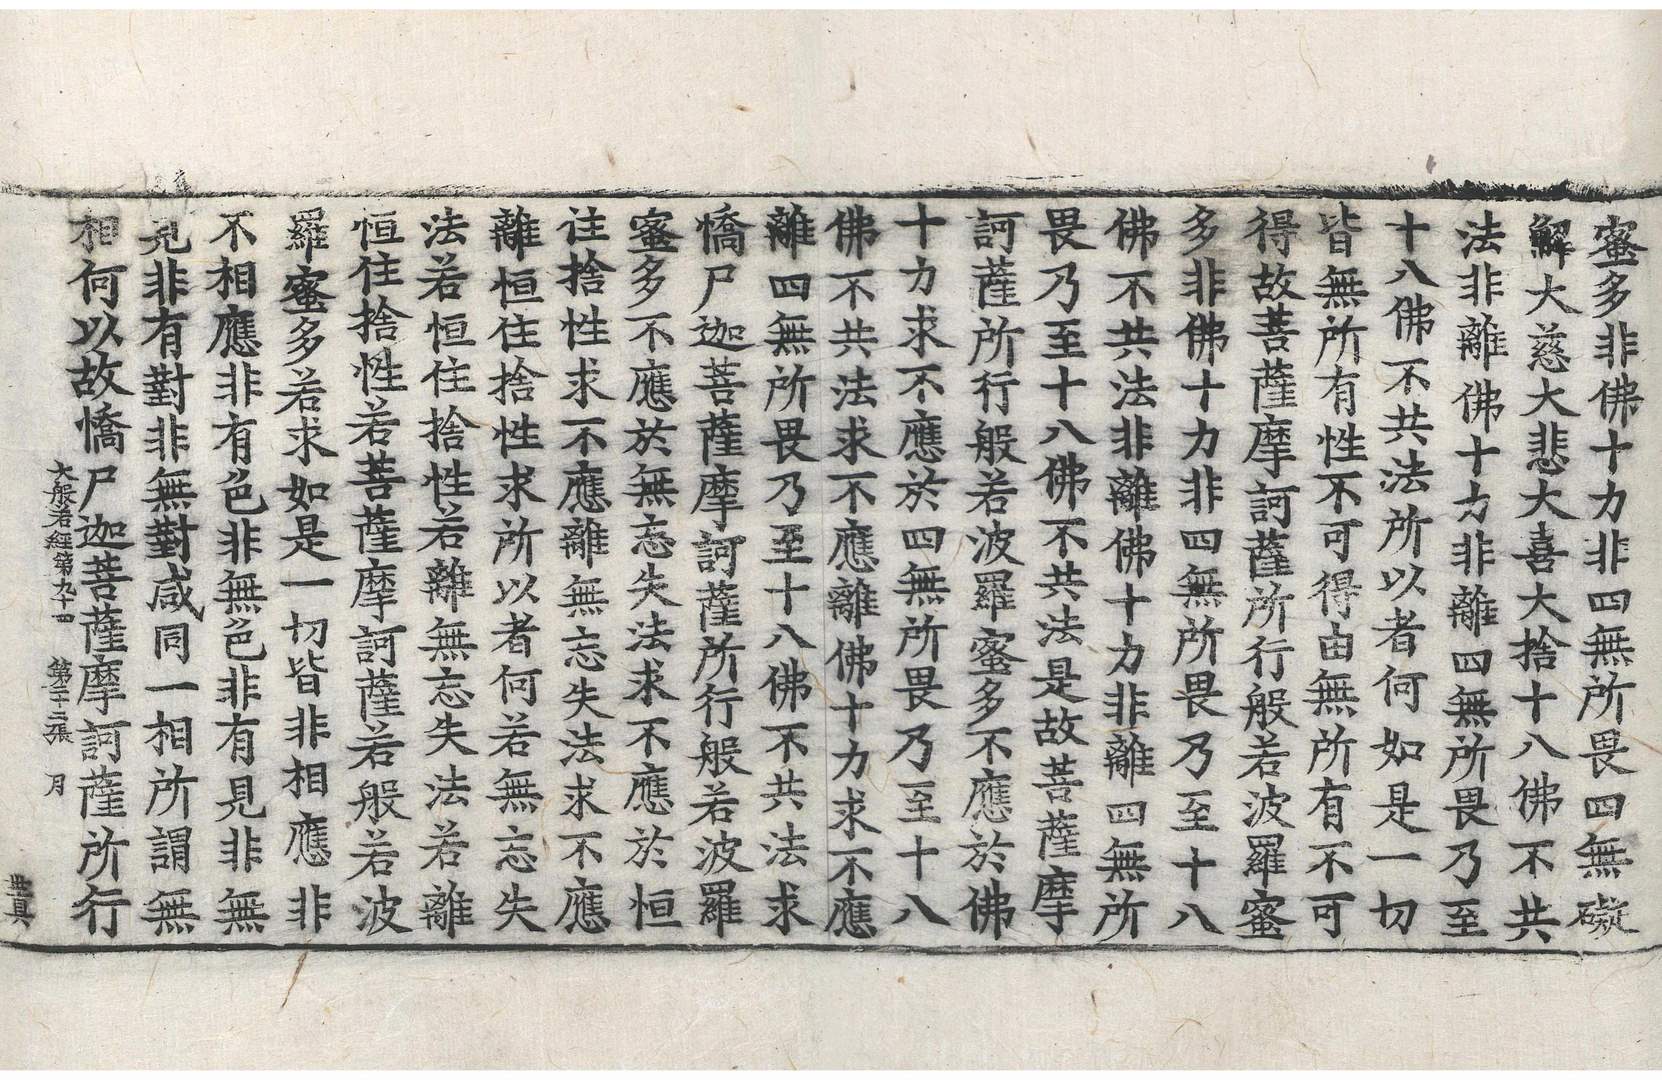 蜜多非佛十力非四無所畏四無礙
解大慈大悲大喜大捨十八佛不共
法非離佛十力非離四無所畏乃至
十八佛不共法所以者何如是一切
皆無所有性不可得由無所有不可
得故菩薩摩訶薩所行般若波羅蜜
多非佛十力非四無所畏乃至十八
佛不共法非離佛十力非離四無所
畏乃至十八佛不共法是故菩薩摩
訶薩所行般若波羅蜜多不應於佛
十力求不應於四無所畏乃至十八
佛不共法求不應離佛十力求不應
離四無所畏乃至十八佛不共法求
憍尸迦菩薩摩訶薩所行般若波羅
蜜多不應於無忘失法求不應於恒
住捨性求不應離無忘失法求不應
離恒住捨性求所以者何若無忘失
法若恒住捨性若離無忘失法若離
恒住捨性若菩薩摩訶薩若般若波
羅蜜多若求如是一切皆非相應非
不相應非有色非無色非有見非無
見非有對非無對咸同一相所謂無
相何以故憍尸迦菩薩摩訶薩所行
大般若經第九十四 第二十二張 月